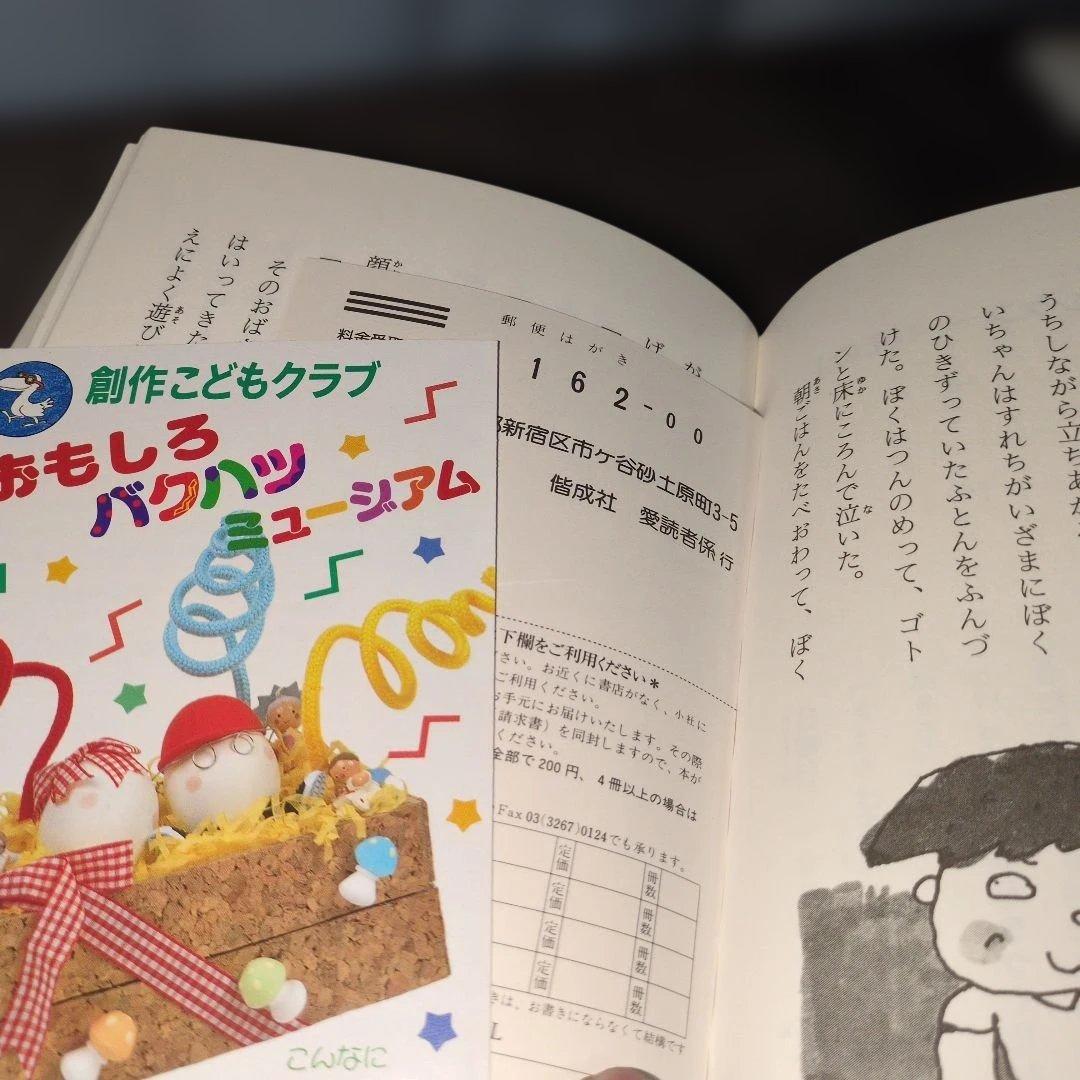 創作こどもクラブ
おもしろ
バクハツ
ミュージアム
こんなに
郵便はがき
162-00
新宿区市ケ谷砂土原町3-5
偕成社 愛読者係 行
下欄をご利用ください*
さい。お近くに書店がなく、小社に
ご利用ください。
お手元にお届けいたします。その際
請求書）を同封しますので、本が
ください。
全部で200円、4冊以上の場合は
Fax 03(3267)0124でも承ります。
定価 冊数
定価 冊数
定価 冊数
定価 冊数
は、お書きにならなくて結構です
うちしながら立ちあが
いちゃんはすれちがいざまにぼく
のひきずっていたふとんをふんづ
けた。ぼくはつんのめって、ゴト
ンと床にころんで泣いた。
朝ごはんをたべおわって、ぼく
げが
顔
そのおば
はいってきた
えによく遊び